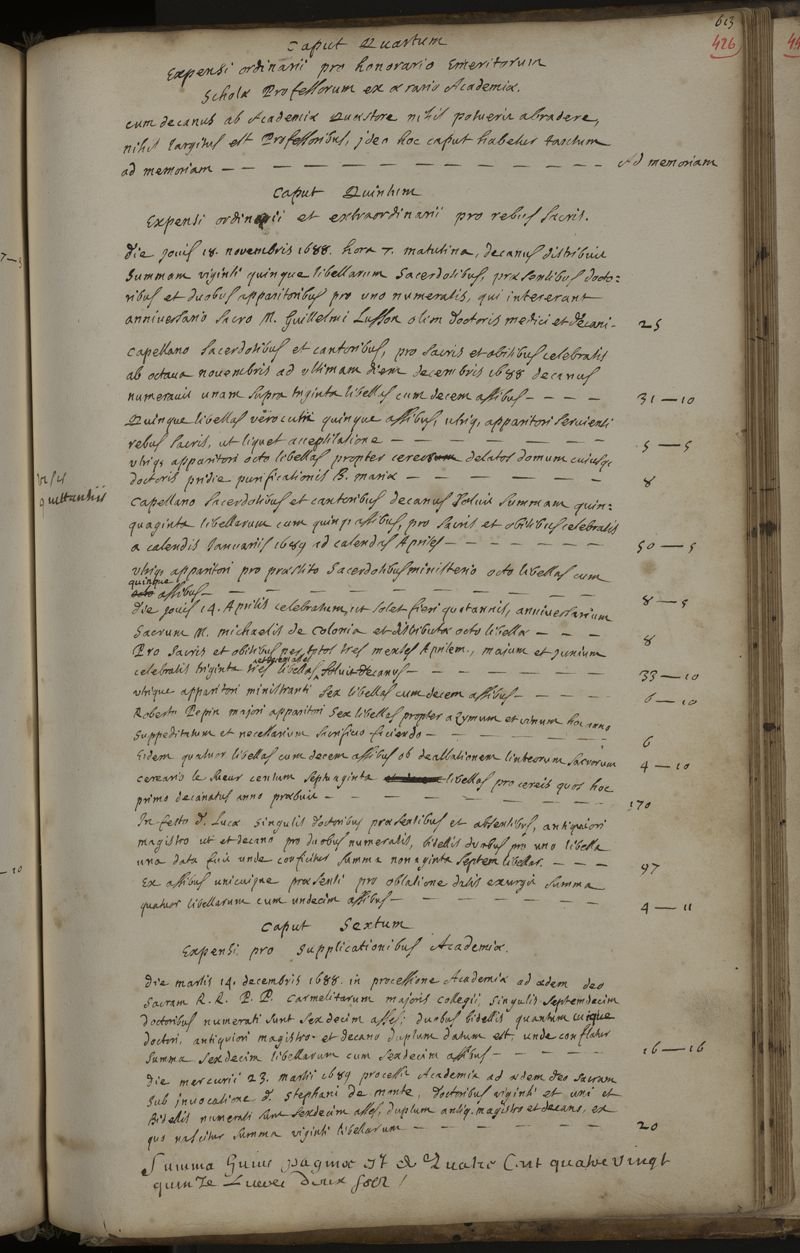 613
426
Caput Quartum
Expensi ordinarii pro honorario Emeritorum
Scholæ Professorum ex ærario Academiæ.
cum decanus ab Academiæ Quæstore nihil potuerit abradere,
nihil largitus est Professoribus, ideo hoc caput habetur tantum
ad memoriam — — — — — — — — — Ad memoriam
Caput Quintum
Expensi ordinarii et extraordinarii pro rebus sacris.
Die jovis 18. novembris 1688. hora 7. matutina, decanus distribuit
summam viginti quinque libellarum sacerdotibus, præsentibus docto:
ribus et duobus apparitoribus pro uno numeratis, qui intererant
anniversario sacro M. Guillelmi Lusson olim doctoris medici et decani - 25
Capellano sacerdotibus et cantoribus, pro sacris et obitibus celebratis
ab octava novembris ad ultimam diem decembris 1688 decanus
numeravit unam supra triginta libellas cum decem assibus — — — — 31 — 10
Quinque libellas vero cum quinque assibus, utriq, apparitori servienti
rebus sacris, ut liquet acceptilatione — — — — — — 5 — 5
utriq, apparitori octo libellas propter cereos delatos domum cuiusq,
doctoris pridie purificationis B. mariæ — — — — — — 8
in sis
quittantiis
Capellano sacerdotibus et cantoribus decanus soluit summam quin:
quaginta libellarum cum quinq, assibus, pro sacris et obitibus celebratis
a calendis Januarii 1689 ad calendas Apriles — — — — — — 50 — 5
utriq, apparitori pro præstito sacerdotibus ministerio octo libellas cum
quinque
octo assibus — — — — — — — — — 8 — 5
Die jovis 14. Aprilis celebratum, ut solet fieri quotannis, anniversarium
sacrum M. michaelis de Colonia et distributæ octo libellæ — — — 8
Pro sacris et obitibus per totos tres menses Aprilem, maium et junium
celebratis triginta tres libellas soluit decanus — — — — — 33 — 10
utrique apparitori ministranti sex libellas cum decem assibus — — — — 6 — 10
Roberto Pepin majori apparitori sex libellas propter azymum et vinum hoc anno
suppeditatum et necessarium sacrificio faciendo — — — — — 6
Eidem quatuor libellas cum decem assibus ob dealbationem linteorum sacrorum 4 — 10
cereario le sueur centum septuaginta libellas pro cereis quos hoc
primo decanatus anno præbuit — — — — — — — — 170
In festo D. Lucæ singulis doctoribus præsentibus et absentibus, antiquiori
magistro ut et decano pro duobus numeratis, bidellis duobus pro uno libella
una data fuit unde conficitur summa nonaginta septem libellar. — — — 97
Ex assibus unicuique præsenti pro oblatione datis exurgit summa
quatuor libellarum cum undecim assibus — — — — — — 4 — 11
Caput Sextum
Expensi pro supplicationibus Academiæ.
Die martis 14. decembris 1688. in processione Academiæ ad ædem deo
sacram R. R. P. P. Carmelitarum majoris collegii, singulis septemdecim
doctoribus numerati sunt sexdecim asses; duobus bidellis quantum cuique
doctori, antiquiori magistro et decano duplum datum est, unde conflatur
summa sexdecim libellarum cum sexdecim assibus — — — — — 16 — 16
Die mercurii 23. martii 1689 processit Academia ad ædem deo sacram
sub invocatione D. stephani de monte, doctoribus viginti et uni et
Bidellis numerati sunt sexdecim asses, duplum antiq. magistro et decano, ex
quo nascitur summa viginti libellarum — — — — — — 20
Summa huius paginæ Est de Quatre Cent quatre vingt
quinze Livres deux solz